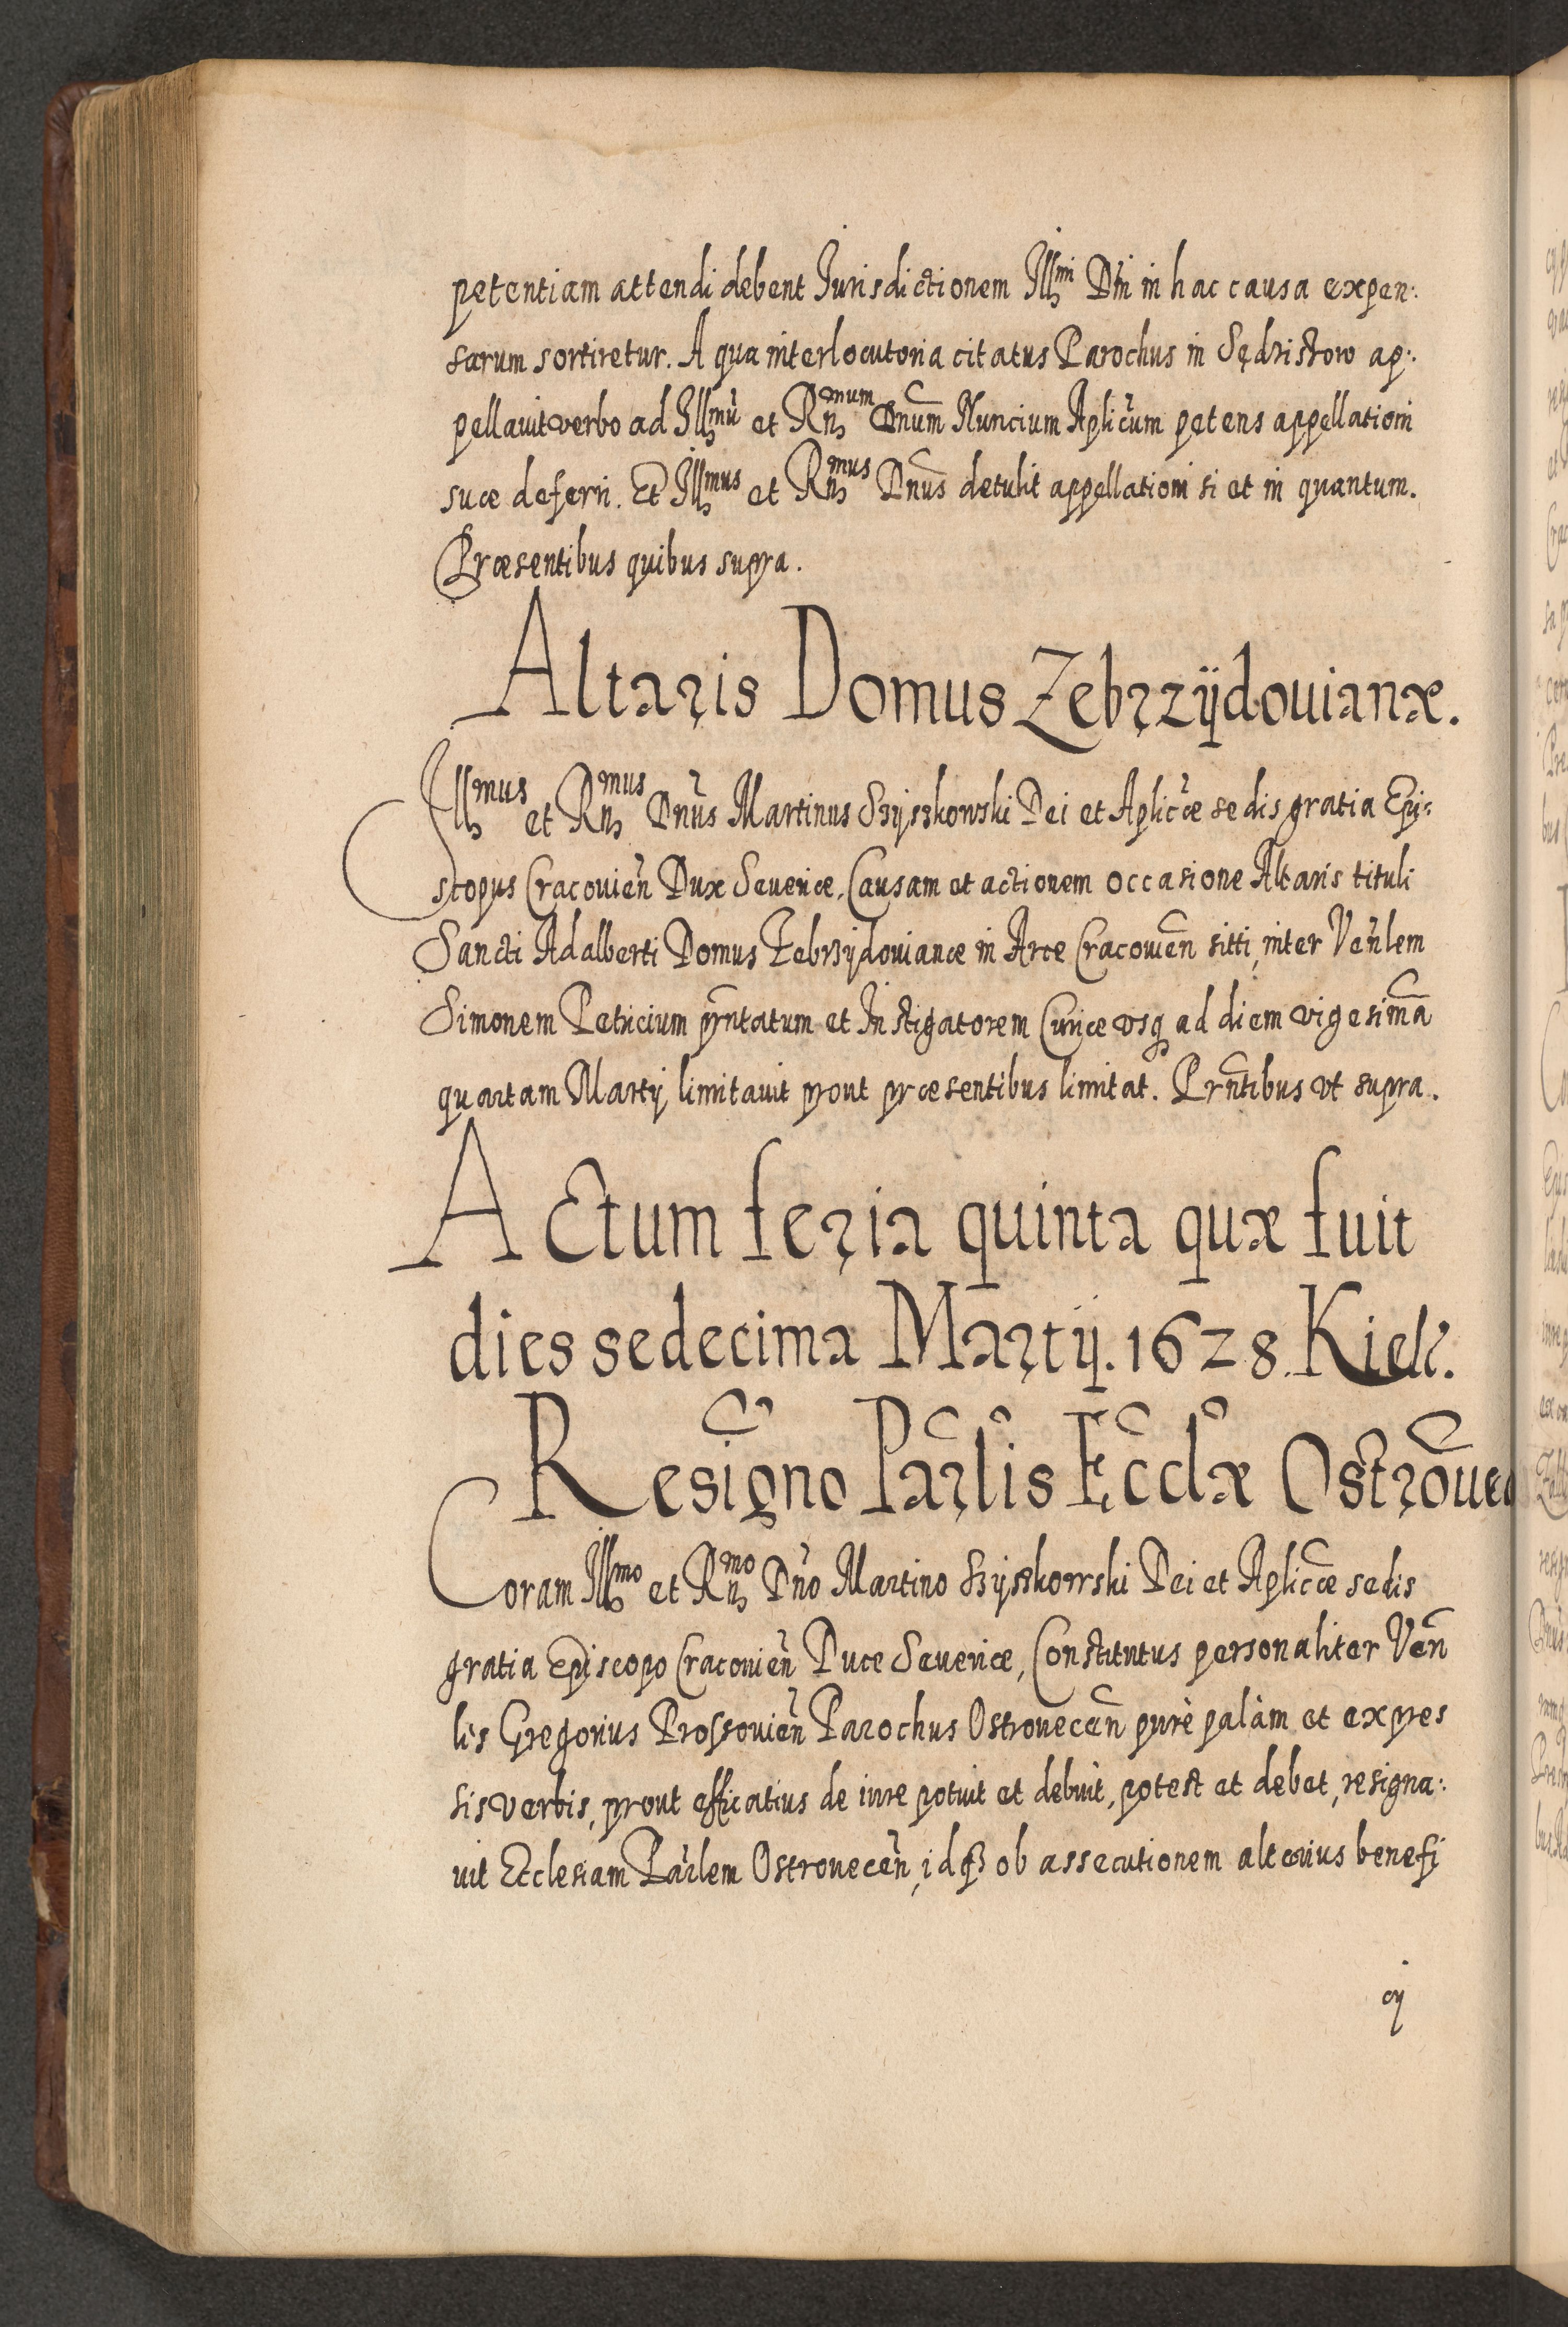 petentiam attendi debent Jurisdictionem Illmi Dni in hac causa expen:
sarum sortiretur. A qua interlocutoria citatus Parochus in Sędzistow ap:
pellauit verbo ad Illmũ et Rnmum Dnum Nuncium Aplicum petens appellationi
suæ deferri. Et Illmus et Rnmus Dnus detulit appellationi si et in quantum.
Præsentibus quibus supra.
Altaris Domus Zebrzÿdouianæ.
Illmus et Rnmus Dnus Martinus Szÿszkowski Dei et Aplicæ sedis gratia Epi:
scopus Cracouien Dux Seueriæ. Causam et actionem occasione Altaris tituli
Sancti Adalberti Domus Zebrzÿdouianæ in Arce Cracouien sitti, inter Venlem
Simonem Petricium pñtatum et Instigatorem Curiæ vsq ad diem vigesimã
quartam Martÿ limitauit prout præsentibus limitat. Prñtibus vt supra.
Actum feria quinta quæ fuit
dies sedecima Martÿ. 1628. Kiel.
Resigno Parlis Eccłæ Ostroue
Coram Illmo et Rnmo Dño Martino Szÿszkowski Dei et Aplicæ sedis
gratia Episcopo Cracouien Duce Seueriæ, Constitutus personaliter Ven
lis Gregorius Prossouien Parochus Ostrouecen purè palàm et expres
sis verbis, prout efficatius de iure potuit et debuit, potest et debet, resigna:
uit Ecclesiam Parlem Ostrouecen, idq ob assecutionem alterius benefi
cÿ